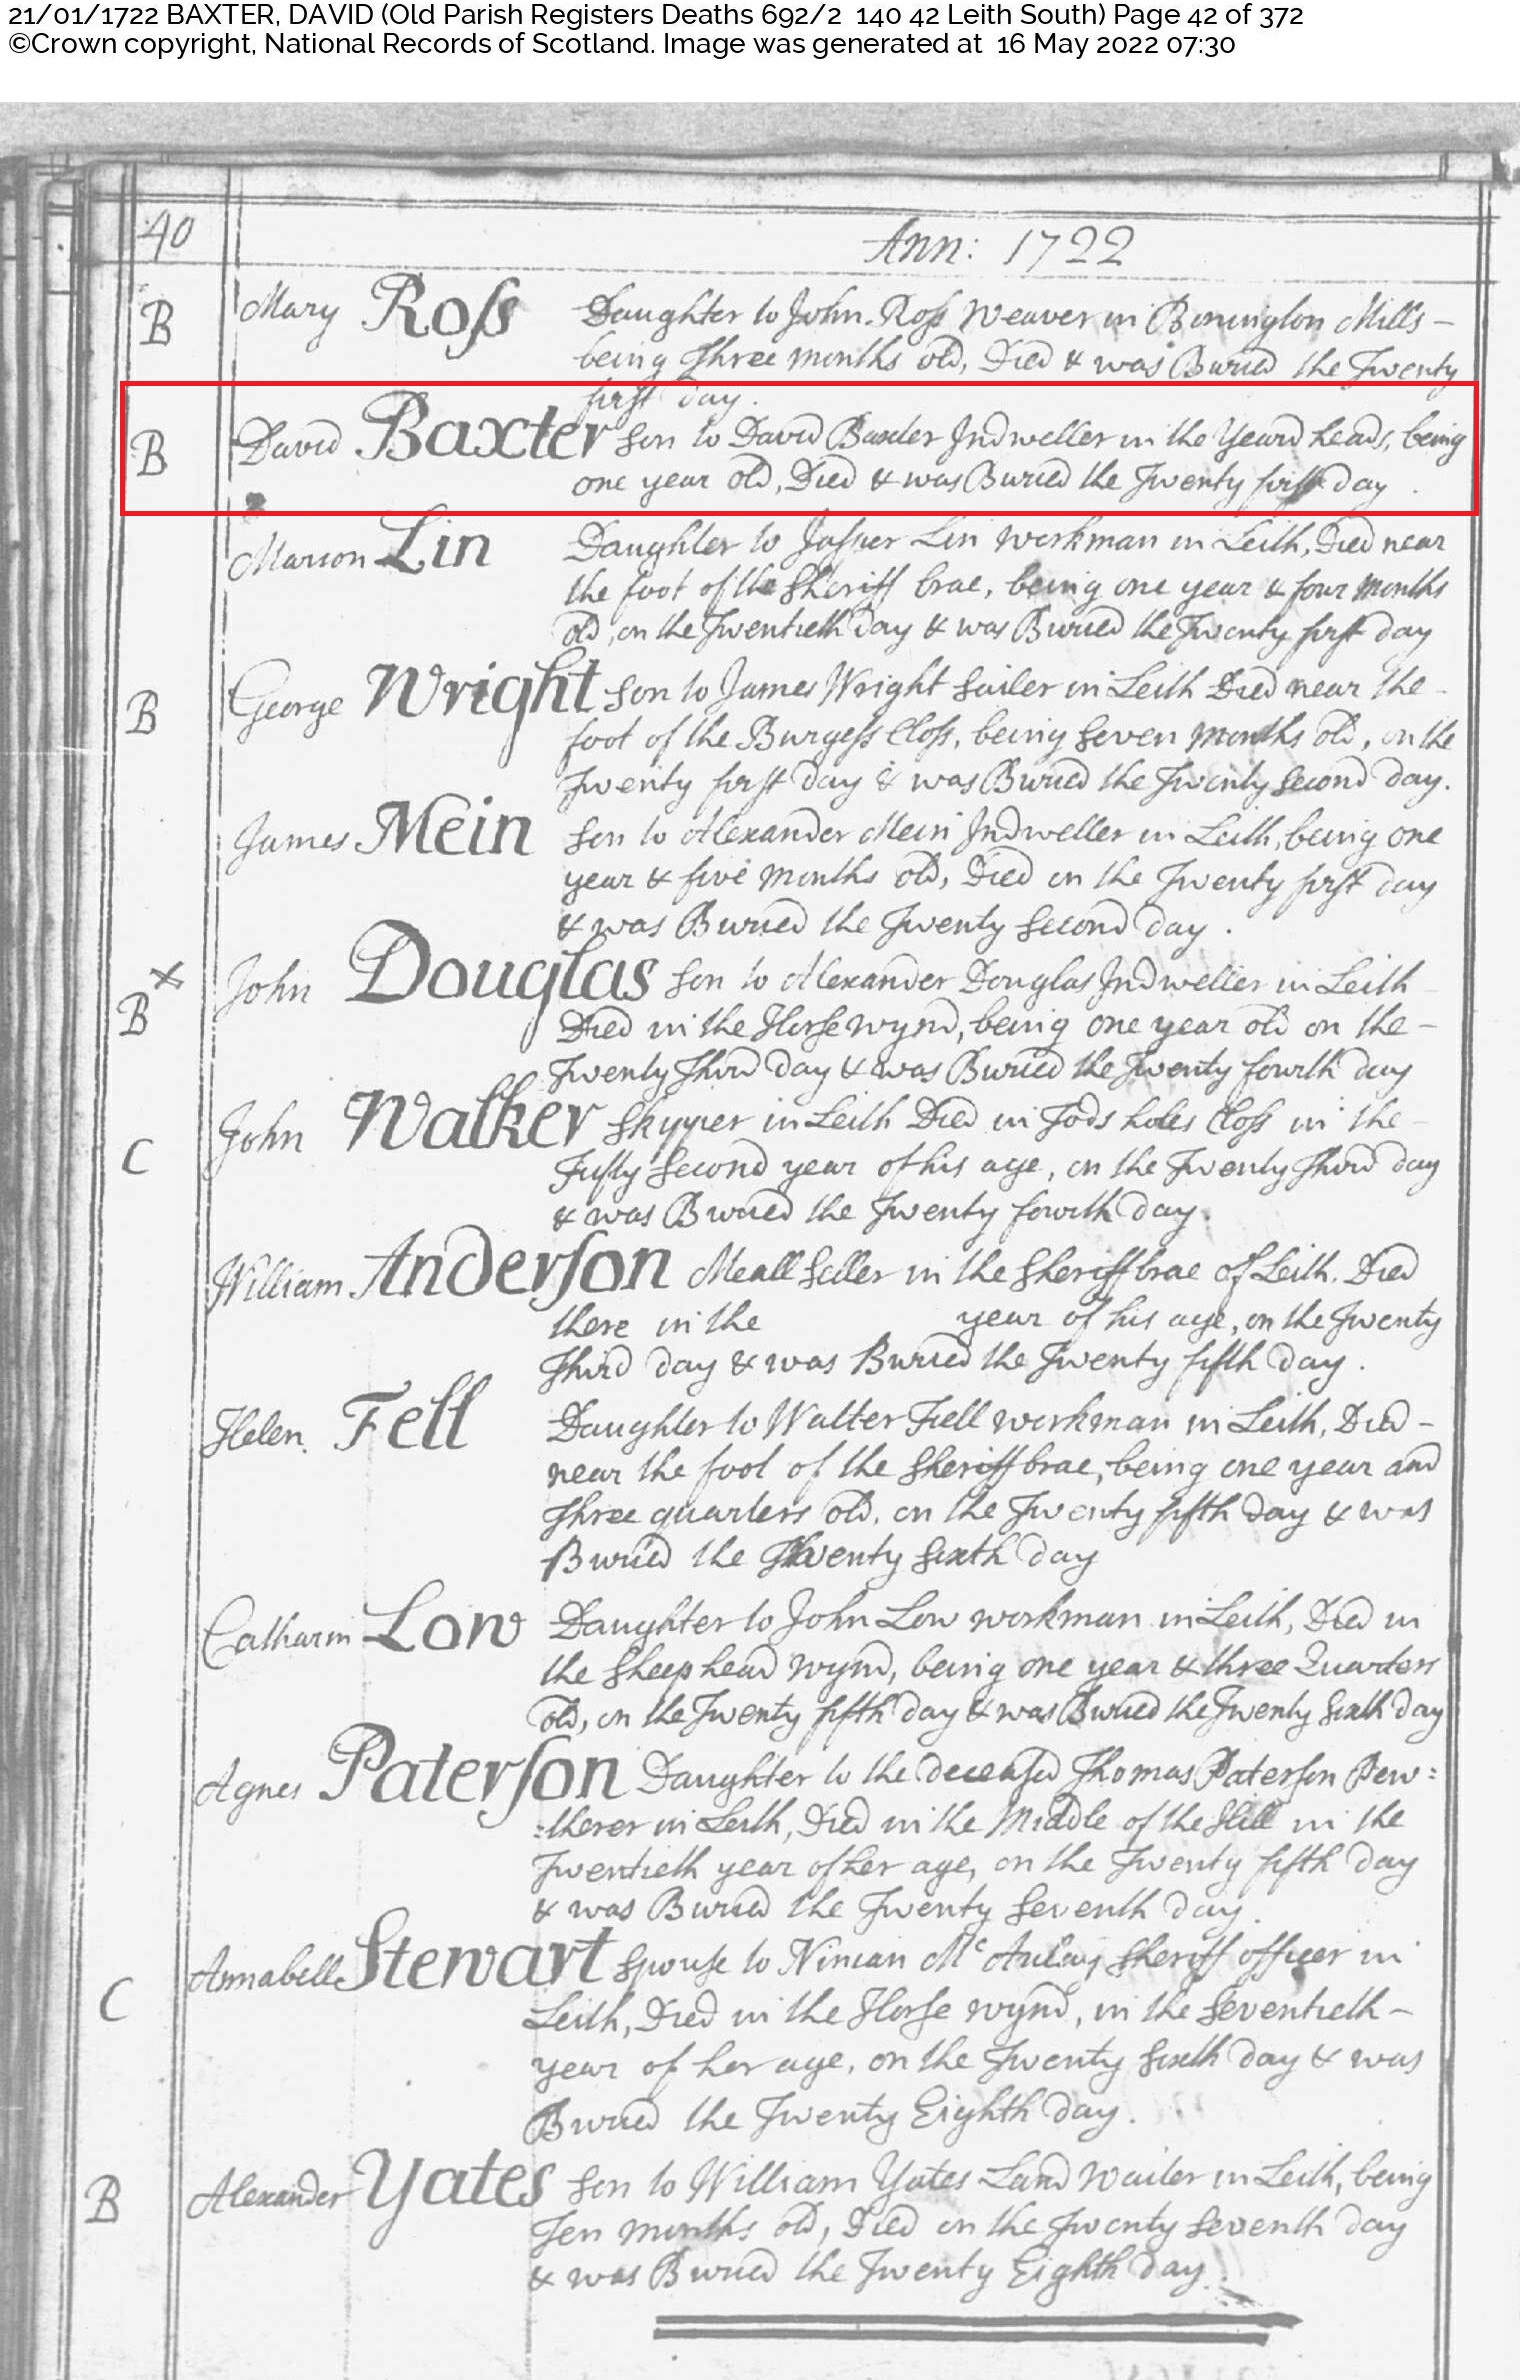 21/01/1722 BAXTER, DAVID (Old Parish Registers Deaths 692/2 140 42 Leith South) Page 42 of 372
©Crown copyright, National Records of Scotland. Image was generated at 16 May 2022 07:30
40
Ann: 1722
B Mary Roſs Daughter to John Roſs Weaver in Bonington Mills –
being Three months old, Died & was Buried the Twenty
first day.
B David Baxter Son to David Baxter Indweller in the Yeard heads, being
one year old, Died & was Buried the Twenty first day
Marion Lin Daughter to Jasper Lin workman in Leith, Died near
the foot of the Sheriff brae, being one year & four months
old, on the Twentieth Day & was Buried the Twenty first day
B George Wright Son to James Wright Sailer in Leith Died near the –
foot of the Burgeſs Cloſs, being Seven Months old, on the
Twenty first Day & was Buried the Twenty Second Day.
James Mein Son to Alexander Mein Indweller in Leith, being one
year & five Months old, Died on the Twenty first day
& was Buried the Twenty Second Day.
B x John Douglas Son to Alexander Douglas Indweller in Leith
Died in the Horse wynd, being one year old on the –
Twenty Third Day & was Buried the Twenty fourth day
C John Walker Skipper in Leith Died in Tods holes Cloſs in the –
Fifty Second year of his age, on the Twenty Third day
& was Buried the Twenty fourth day.
William Anderſon Meall Seller in the Sheriff brae of Leith. Died
there in the year of his age, on the Twenty
Third day & was Buried the Twenty fifth Day.
Helen Fell Daughter to Walter Fell workman in Leith, Died –
near the foot of the Sheriff brae, being one year and
Three quarters old, on the Twenty fifth Day & was
Buried the Twenty Sixth Day
Catharin Low Daughter to John Low workman in Leith, Died in
the Sheep head wynd, being one year & three Quarters
old, on the Twenty fifth Day & was Buried the Twenty Sixth Day
Agnes Paterſon Daughter to the deceased Thomas Paterſon Pew:
:therer in Leith, Died in the Middle of the Hill in the
Twentieth year of her age, on the Twenty fifth Day
& was Buried the Twenty Seventh Day.
C Annabell Stewart Spouse to Ninian Mc Aulay Sheriff officer in
Leith, Died in the Horse wynd, in the Seventieth –
year of her age, on the Twenty Sixth Day & was
Buried the Twenty Eighth Day.
B Alexander Yates Son to William Yates Land Waiter in Leith, being
Ten months old, Died on the Twenty Seventh Day
& was Buried the Twenty Eighth Day.